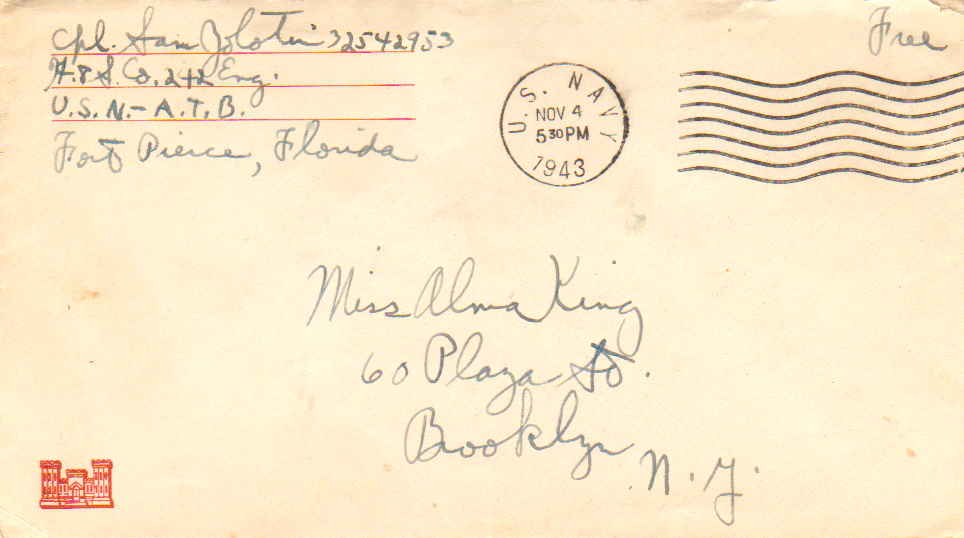 Cpl. Sam Zolotin 32542953
H. & S. Co. 242 Eng.
U.S.N. - A.T.B.
Fort Pierce, Florida
Free
U.S. NAVY
NOV 4
5 30 PM
1943
Miss Alma King
60 Plaza St.
Brooklyn
N.Y.